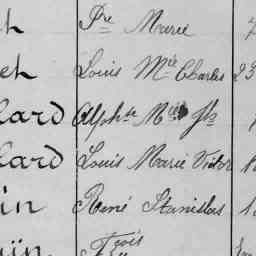 h Pre Marie
eh Louis Mie Charles 23
lard Alphse Mie
lard Louis Marie Victor
in René Stanislas
Frois